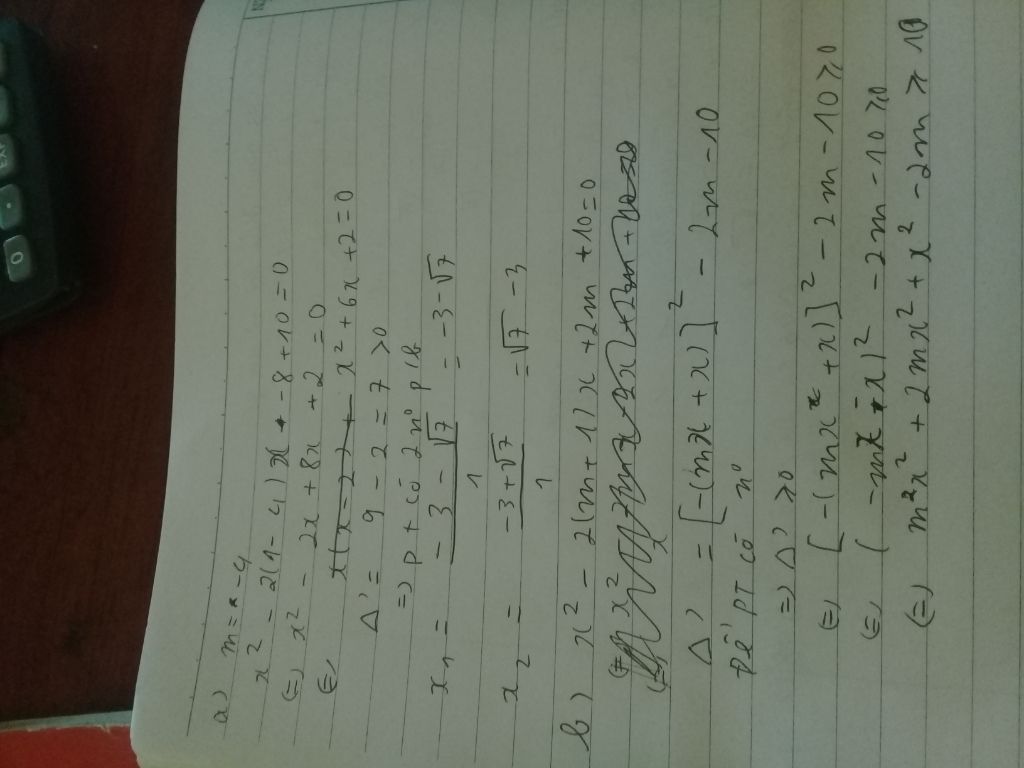 a) m = -4
x² - 2(1 - 4)x - 8 + 10 = 0
(=) x² - 2x + 8x + 2 = 0
(=) x² + 6x + 2 = 0
Δ' = 9 - 2 = 7 > 0
=> pt có 2 n⁰ p lb
x₁ = (-3 - √7)/1 = -3 - √7
x₂ = (-3 + √7)/1 = √7 - 3
b) x² - 2(m + 1)x + 2m + 10 = 0
Δ' = [-(mx + x)]² - 2m - 10
Để PT có n⁰
=> Δ' ≥ 0
(=) [-(mx + x)]² - 2m - 10 ≥ 0
(=) (-mx - x)² - 2m - 10 ≥ 0
(=) m²x² + 2mx² + x² - 2m ≥ 10